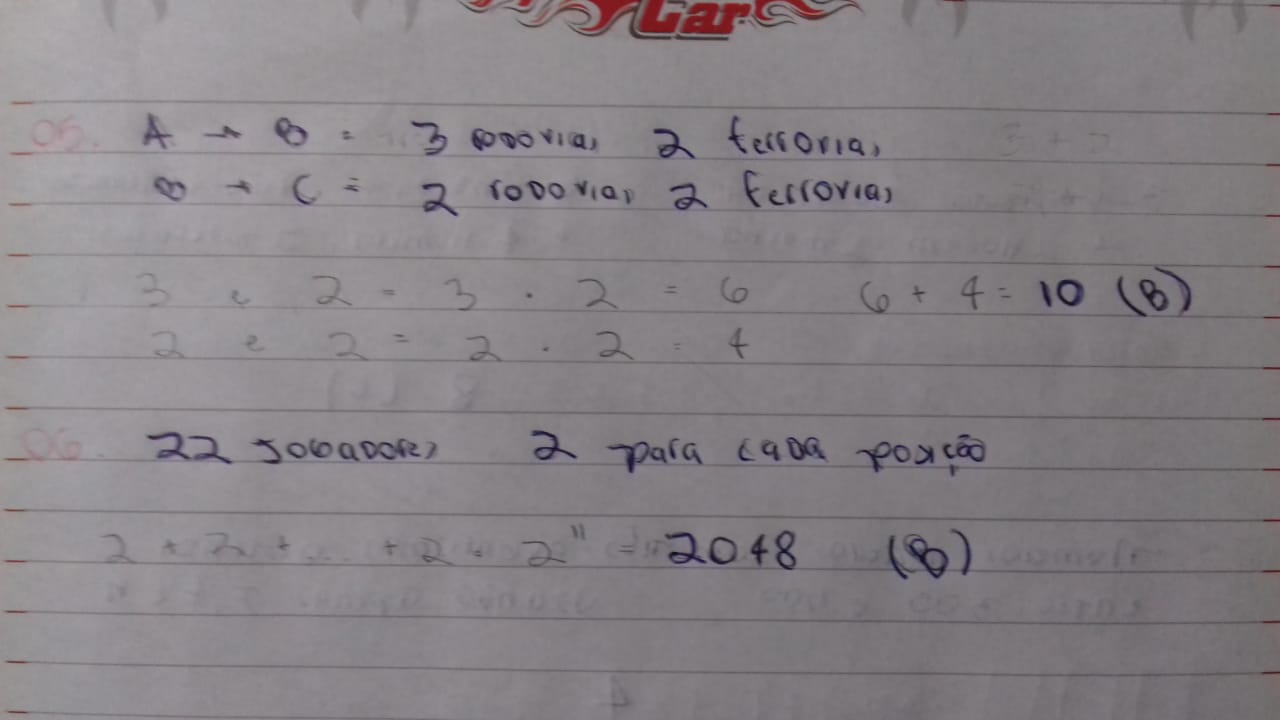 Car
05. A → B = 3 rodovias 2 ferrovias
B → C = 2 rodovias 2 ferrovias
3 e 2 = 3 . 2 = 6 6 + 4 = 10 (B)
2 e 2 = 2 . 2 = 4
06. 22 jogadores 2 para cada posição
2 + 2 + ... + 2 = 2¹¹ = 2048 (B)